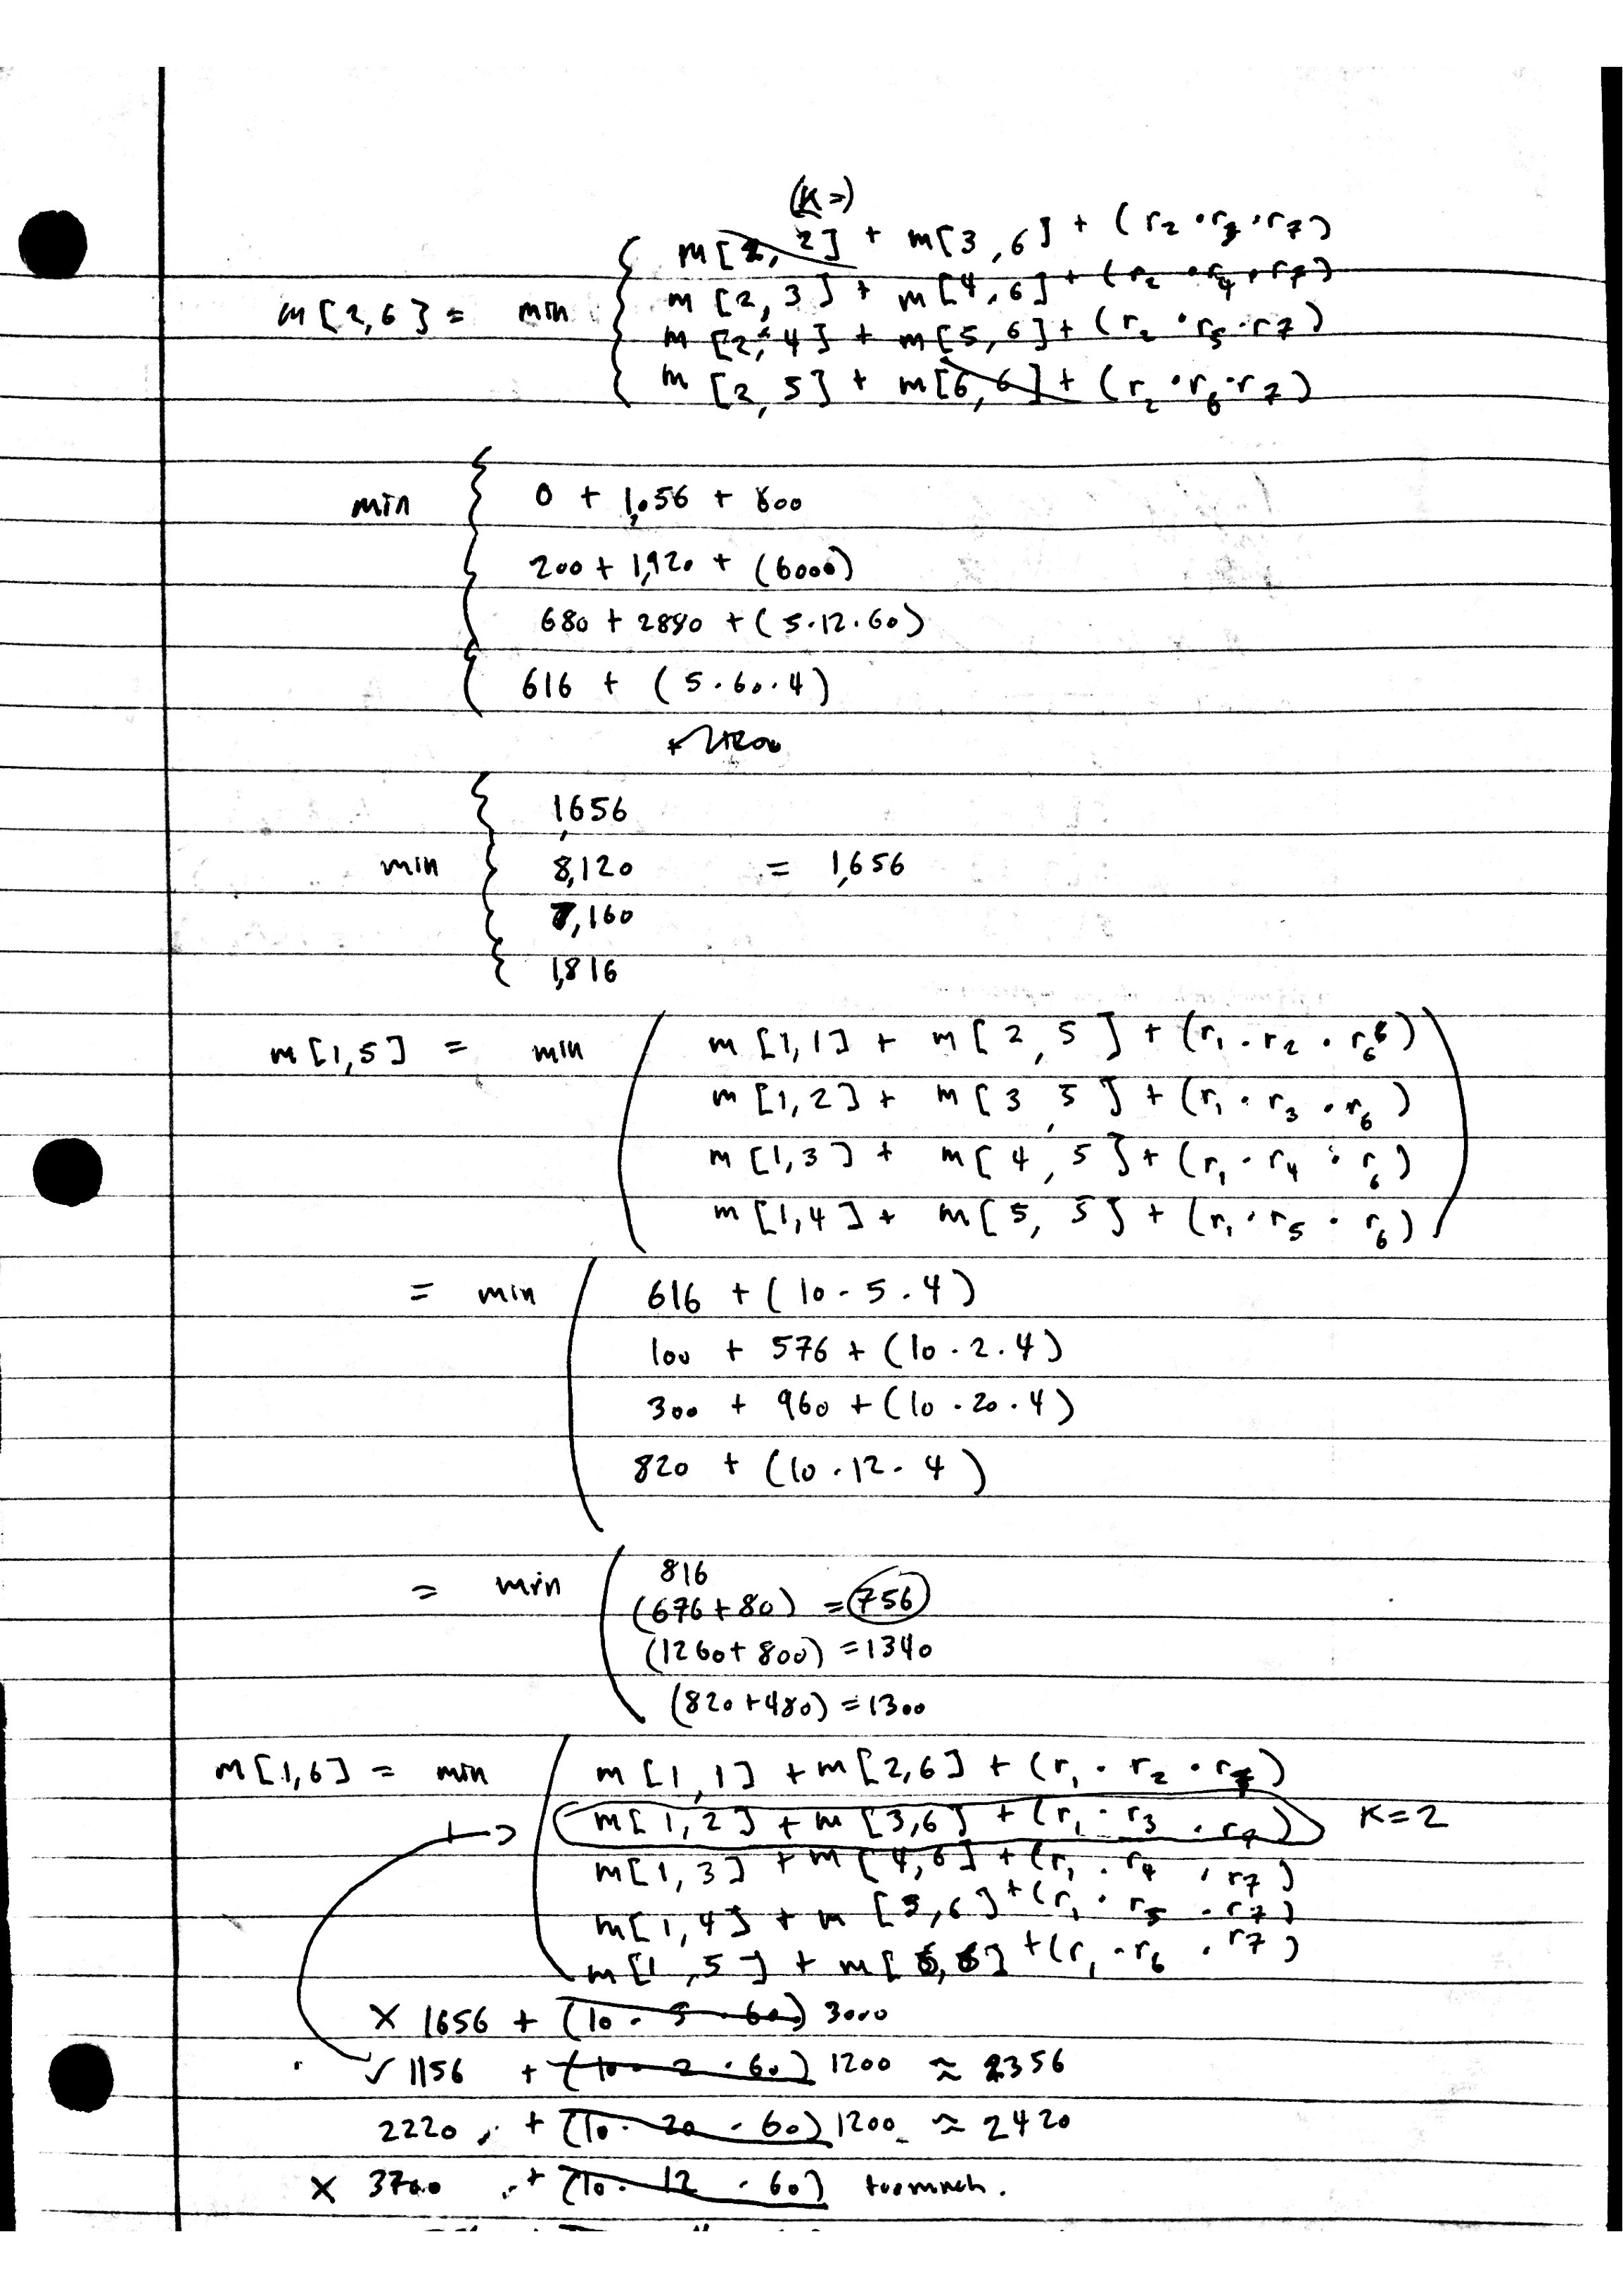 (K=)
m[2,6] = min { m[2,2] + m[3,6] + (r2 · r3 · r7)
m[2,3] + m[4,6] + (r2 · r4 · r7)
m[2,4] + m[5,6] + (r2 · r5 · r7)
m[2,5] + m[6,6] + (r2 · r6 · r7)
min { 0 + 1,056 + 600
200 + 1,920 + (6000)
680 + 2880 + (5·12·60)
616 + (5·60·4)
min { 1,656
8,120 = 1,656
7,160
1,816
m[1,5] = min ( m[1,1] + m[2,5] + (r1 · r2 · r6)
m[1,2] + m[3,5] + (r1 · r3 · r6)
m[1,3] + m[4,5] + (r1 · r4 · r6)
m[1,4] + m[5,5] + (r1 · r5 · r6) )
= min ( 616 + (10 · 5 · 4)
100 + 576 + (10 · 2 · 4)
300 + 960 + (10 · 20 · 4)
820 + (10 · 12 · 4)
= min ( 816
(676+80) = 756
(1260+800) = 1340
(820+480) = 1300
m[1,6] = min ( m[1,1] + m[2,6] + (r1 · r2 · r7)
m[1,2] + m[3,6] + (r1 · r3 · r7) K=2
m[1,3] + m[4,6] + (r1 · r4 · r7)
m[1,4] + m[5,6] + (r1 · r5 · r7)
m[1,5] + m[6,6] + (r1 · r6 · r7)
× 1656 + (10 · 5 · 60) 3000
✓ 1156 + (10 · 2 · 60) 1200 ≈ 2356
2220 + (10 · 20 · 60) 1200 ≈ 2420
× 3700 + (10 · 12 · 60) too much.